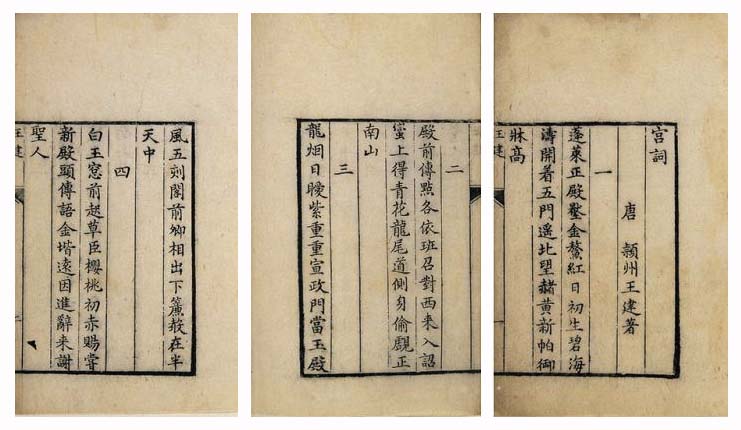 宫詞
唐 潁州王建著
一
蓬萊正殿壓金鰲紅日初生碧海
濤開着五門遥北望赭黄新帕御
牀高
王建
二
殿前傳點各依班召對西来入詔
蠻上得青花龍尾道側身偷覷正
南山
三
龍烟日暖紫重重宣政門當玉殿
風五刻閣前卿相出下簾聲在半
天中
四
白玉窓前起草臣櫻桃初赤賜嘗
新殿頭傳語金堦遠因進辭来謝
聖人
王建